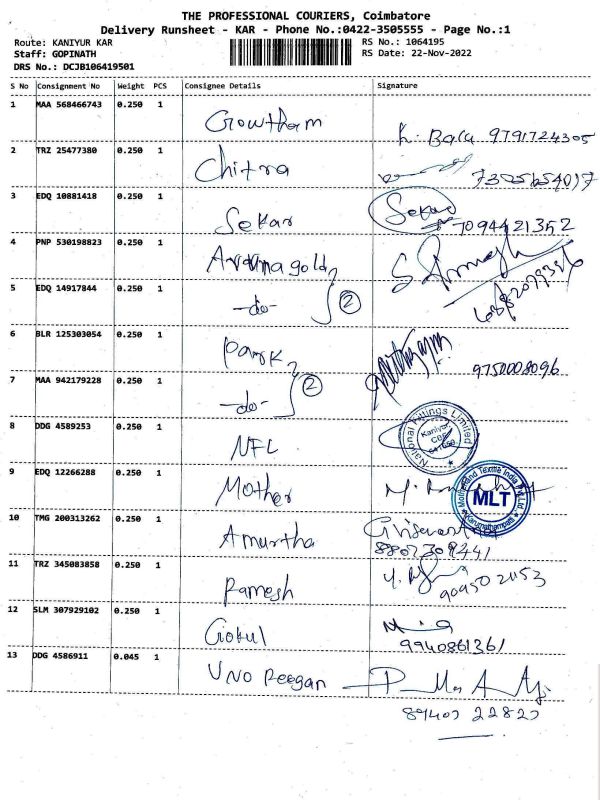 THE PROFESSIONAL COURIERS, Coimbatore
Delivery Runsheet - KAR - Phone No.:0422-3505555 - Page No.:1
Route: KANIYUR KAR RS No.: 1064195
Staff: GOPINATH RS Date: 22-Nov-2022
DRS No.: DCJB106419501
S No Consignment No Weight PCS Consignee Details Signature
1 MAA 568466743 0.250 1 Gowtham K. Bala 9791724305
2 TRZ 25477380 0.250 1 Chitra
3 EDQ 10881418 0.250 1 Sekar Sekar 7094421352
4 PNP 530198823 0.250 1
5 EDQ 14917844 0.250 1 -do- 2
6 BLR 125303054 0.250 1 Park 9750008096
7 MAA 942179228 0.250 1 -do- 2
8 DDG 4589253 0.250 1 NFL National Fittings Limited Kaniyur
9 EDQ 12266288 0.250 1 Mother MLT
10 TMG 200313262 0.250 1 Amurtha
8807309441
11 TRZ 345083858 0.250 1 Ramesh
12 SLM 307929102 0.250 1 Gokul
9940861361
13 DDG 4586911 0.045 1 UNO Peegan
89407 22827